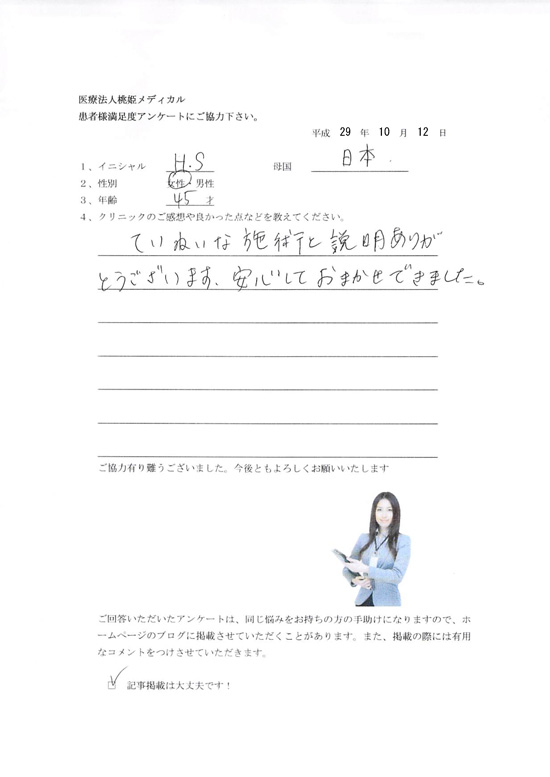 医療法人桃姫メディカル
患者様満足度アンケートにご協力下さい。
平成 29 年 10 月 12 日
1、イニシャル H.S 母国 日本.
2、性別 女性・男性
3、年齢 45 才
4、クリニックのご感想や良かった点などを教えてください。
ていねいな施術と説明ありが
とうございます、安心しておまかせできました。
ご協力有り難うございました。今後ともよろしくお願いいたします
ご回答いただいたアンケートは、同じ悩みをお持ちの方の手助けになりますので、ホ
ームページのブログに掲載させていただくことがあります。また、掲載の際には有用
なコメントをつけさせていただきます。
記事掲載は大丈夫です！